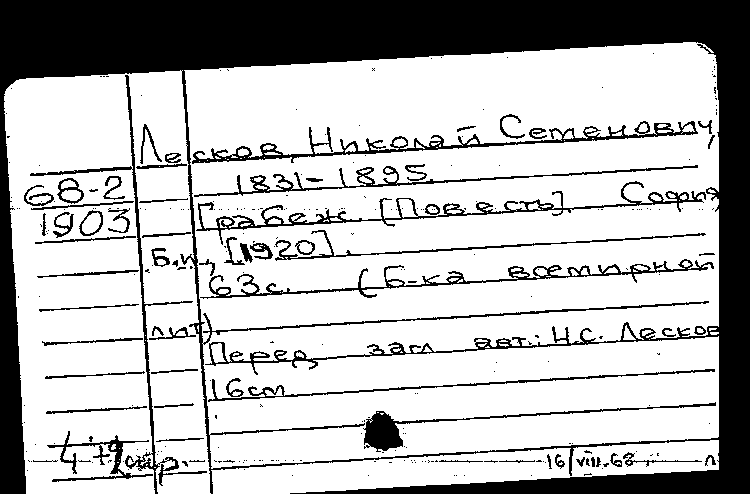 Лесков, Николай Семенович,
68-2 1831-1895.
1903 Грабеж. [Повесть]. София
Б.и., [1920].
63с. (Б-ка всемирной
лит).
Перед загл авт.: Н.С. Лесков
16см
4+2 стр. 16/VIII-68 л